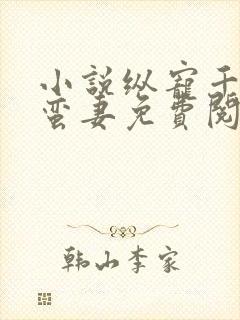 小说纵宠千
蛮妻免費阅
韩山李家